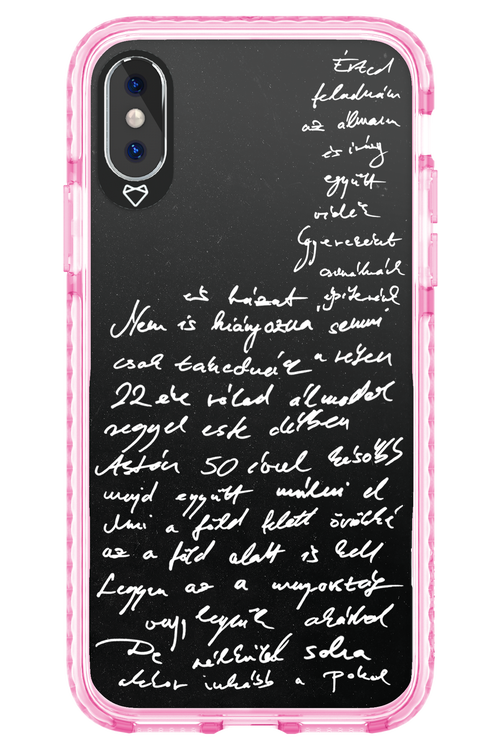 Érted
feladnám
az álmaim
és így
együtt
veled
Gyerekeket
csinálnánk
és házat építenénk
Nem is hiányozna semmi
csak takednék a részen
22 éve rólad álmodok
reggel este délben
Aztán 50 évvel később
majd együtt múlni el
Ami a föld felett örökké
az a föld alatt is kell
Legyen az a mennyország
vagy legyünk akárhol
De nélküled soha
akkor inkább a pokol